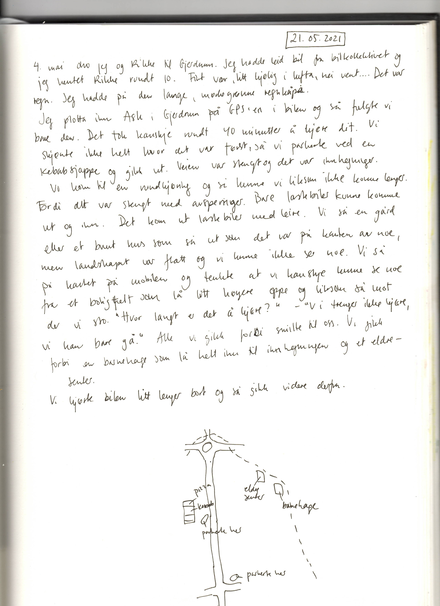 21.05.2021
4. mai dro jeg og Rikke til Gjerdrum. Jeg hadde leid bil fra bilkollektivet og
jeg hentet Rikke rundt 10. Føltes var litt kjølig i lufta, nei vent.... Det var
regn. Jeg hadde på den lange, mosegrønne regnkåpa.
Jeg plotta inn Ask i Gjerdrum på GPS-en i bilen og så fulgte vi
bare den. Det tok kanskje rundt 40 minutter å kjøre dit. Vi
skjønte ikke helt hvor det var først, så vi parkerte ved en
kebabsjappe og gikk ut. Veien var stengt og det var innhegninger.
Vi kom til en rundkjøring og så kunne vi liksom ikke komme lenger.
Fordi alt var stengt med avsperringer. Bare lastebiler kunne komme
ut og inn. Det kom ut lastebiler med leire. Vi så en gård
eller et brunt hus som så ut som det var på kanten av noe,
men landskapet var flatt og vi kunne ikke se noe. Vi så
på kartet på mobilen og tenkte at vi kanskje kunne se noe
fra et boligfelt som lå litt høyere oppe og liksom så mot
der vi sto. "Hvor langt er det å kjøre?" - "Vi trenger ikke kjøre,
vi kan bare gå." Alle vi gikk forbi smilte til oss. Vi gikk
forbi en barnehage som lå helt inn til innhegningen og et eldre-
senter.
Vi kjørte bilen litt lenger bort og så gikk videre derfra.
pizza
kebab
parkerte her
eldre
senter
barnehage
parkerte her